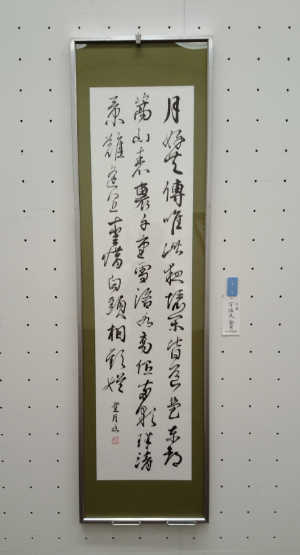 月好共傳唯此夜境閑皆道是東都
嵩山表裏千重雪洛水高低兩顆珠清
景難逢宜愛惜白頭相